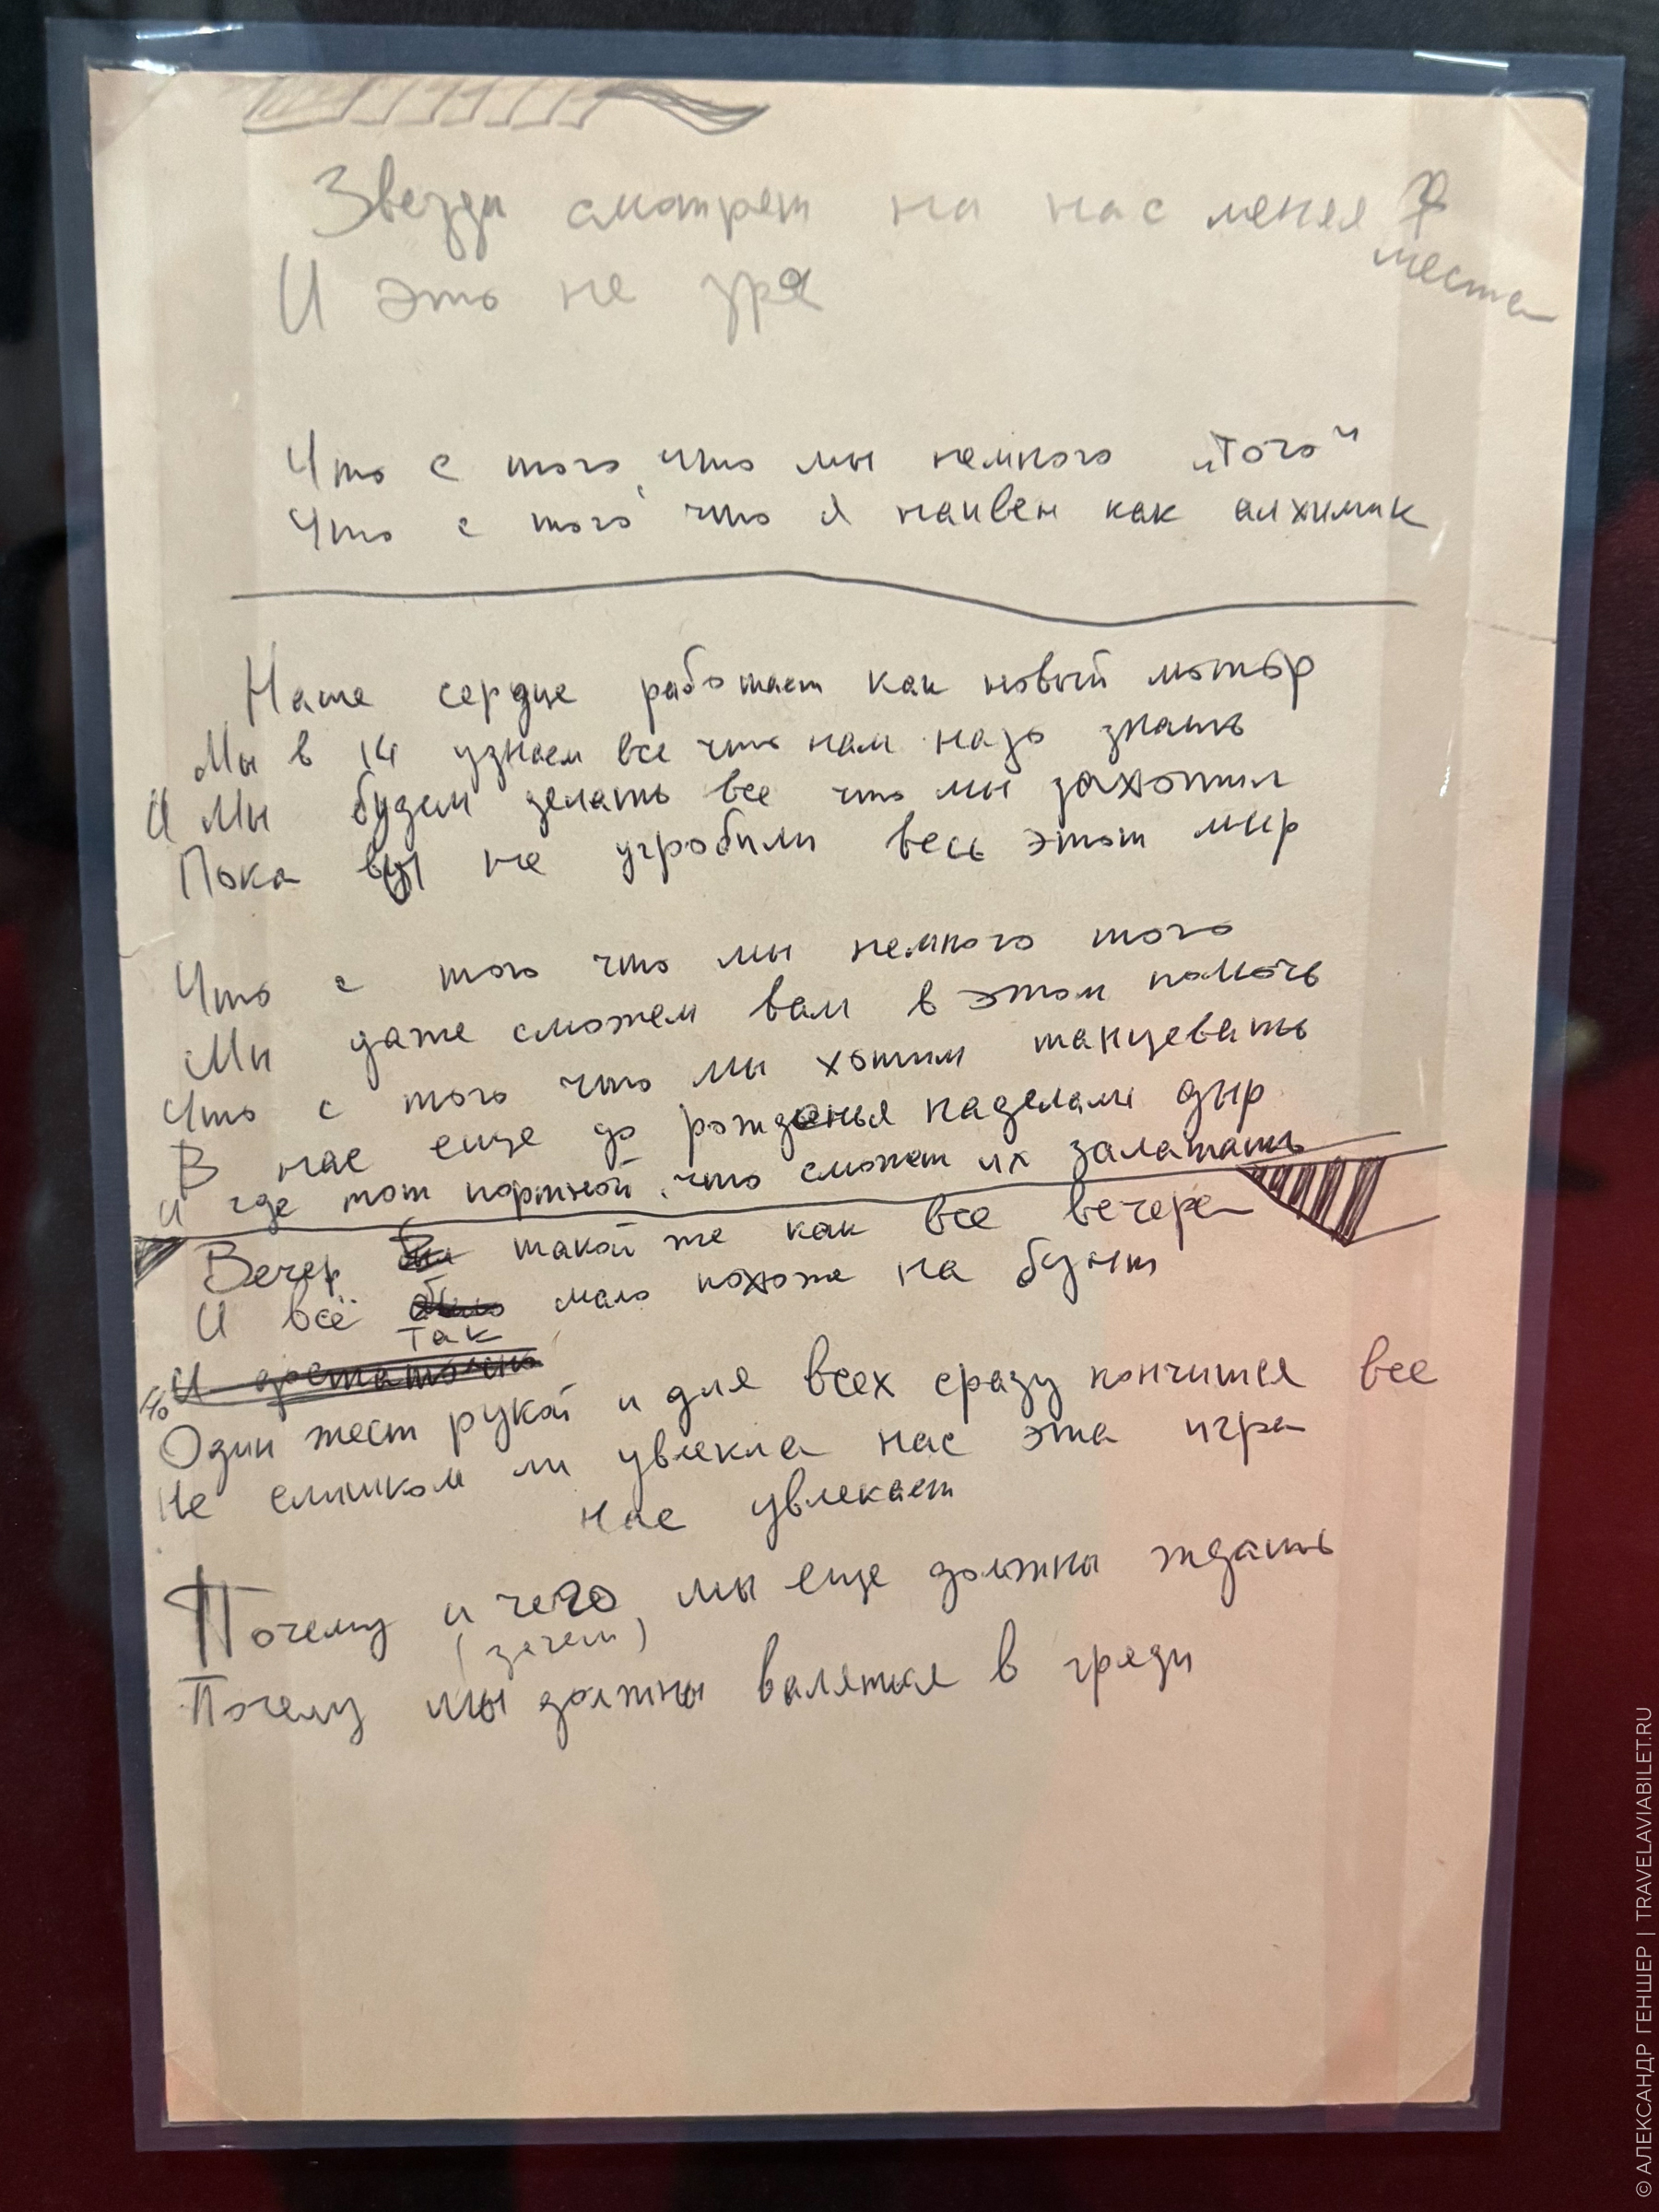 Звезды смотрят на нас меняя
места
И это не зря
Что с того, что мы немного „Того“
Что с того, что я наивен как алхимик
Наше сердце работает как новый мотор
Мы в 14 узнаем все что нам надо знать
И Мы будем делать все что мы захотим
Пока вы не угробили весь этот мир
Что с того что мы немного того
Мы даже сможем вам в этом помочь
Что с того что мы хотим танцевать
В нас еще до рожденья наделали дыр
И где тот портной, что сможет их залатать
Вечер такой же как все вечера
И всё было мало похоже на бунт
Так
Но И достаточно
Один жест рукой и для всех сразу кончится все
Не слишком ли увлекла нас эта игра
нас увлекает
Почему и чего, мы еще должны ждать
(зачем)
Почему мы должны валятся в грязи
© АЛЕКСАНДР ГЕНШЕР | TRAVELAVIABILET.RU